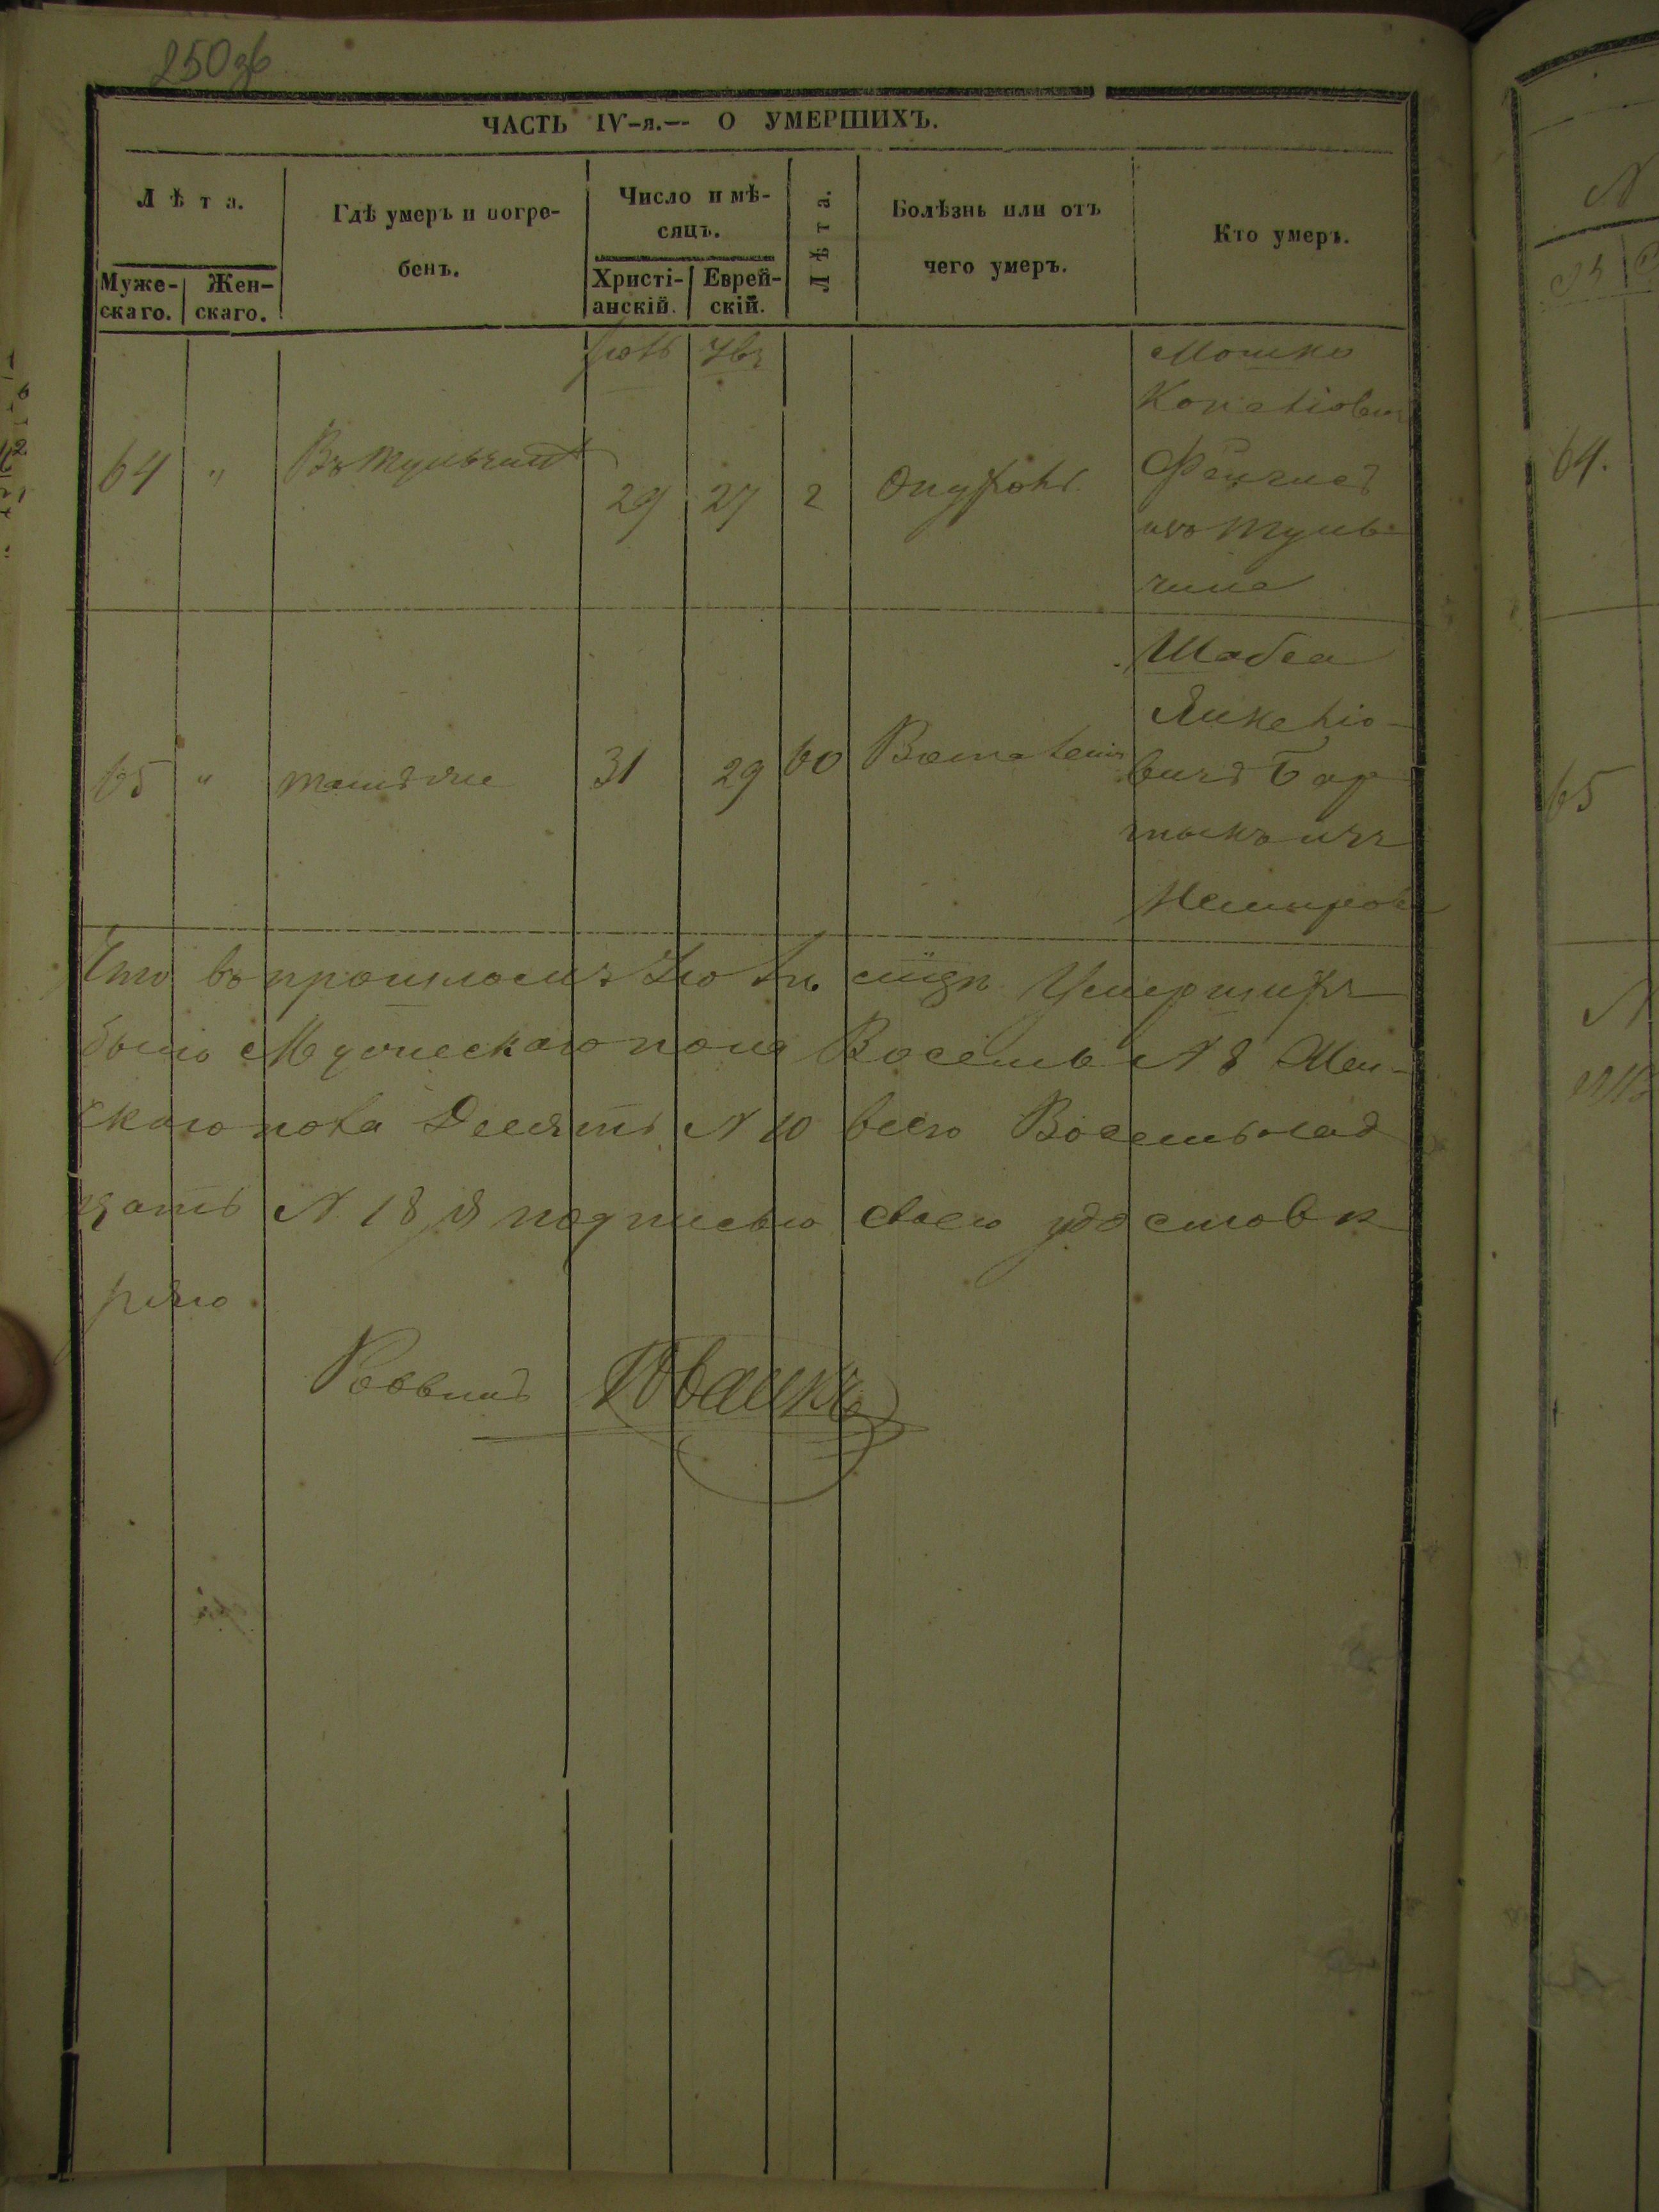 250 об
ЧАСТЬ IV-я.— О УМЕРШИХЪ.
Лѣта.
Муже-
скаго.
Жен-
скаго.
Гдѣ умеръ и погре-
бенъ.
Число и мѣ-
сяцъ.
Христі-
анскій.
Еврей-
скій.
Лѣта.
Болѣзнь или отъ
чего умеръ.
Кто умеръ.
Іюль
64 " Въ Тульчинѣ 29 27 2 Опухоль
Мошко
изъ Туль-
чина
65 " тамъ же 31 29 60 Воспаленія
Шабса
Янкеліо-
вичъ Бар
тыкъ изъ
Немирова
Что въ прошломъ Іюлѣ м-цѣ Умершихъ
было Мужескаго пола Восемь № 8 Жен-
скаго пола Десять № 10 всего Восемьнад
цать № 18 я подписью своею удостовѣ
ряю
Раввинъ
64.
65